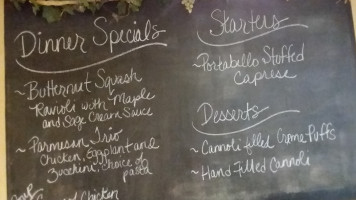 Dinner Specials
~Butternut Squash
Ravioli with Maple
and Sage Cream Sauce
~Parmesan Trio
Chicken, Eggplant and
Zucchini, choice of
pasta
Chicken
Starters
~Portabello Stuffed
Caprese
Desserts
~Cannoli filled Creme Puffs
~Hand Filled Cannoli